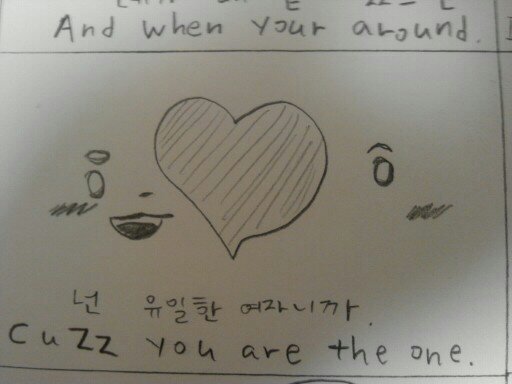 And when your around.
넌 유일한 여자니까.
cuzz you are the one.